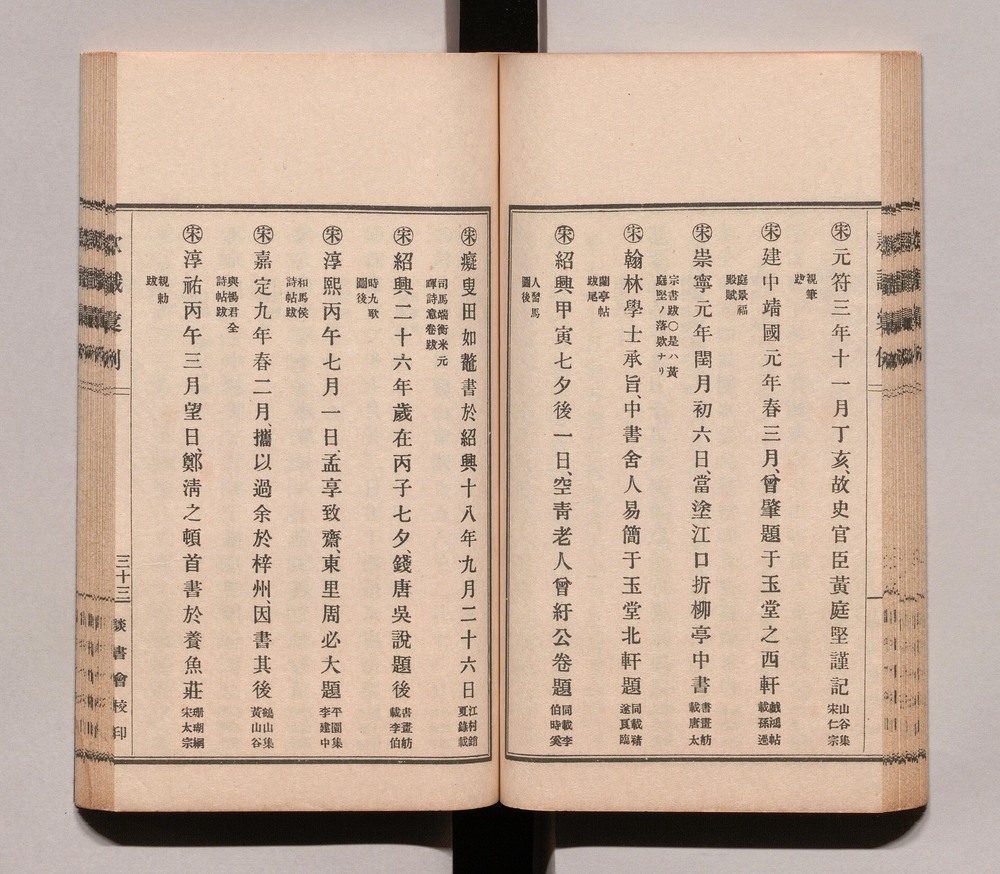 宋 元符三年十一月丁亥、故史官臣黃庭堅謹記 山谷集宋仁宗
親筆跋
宋 建中靖國元年春三月、曾肇題于玉堂之西軒 戲鴻帖載孫過
庭景福殿賦
宋 崇寧元年閏月初六日、當塗江口折柳亭中書 書畫舫載唐太
宗書跋○是ハ黃庭堅ノ落款ナリ
宋 翰林學士承旨、中書舍人易簡于玉堂北軒題 同載褚遂良臨
蘭亭帖跋尾
宋 紹興甲寅七夕後一日、空青老人曾紆公卷題 同載李伯時奚
人習馬圖後
宋 癡叟田如鼇書於紹興十八年九月二十六日 江村銷夏錄載
司馬端衡米元暉詩意卷跋
宋 紹興二十六年歲在丙子七夕、錢唐吳說題後 書畫舫載李伯
時九歌圖後
宋 淳熙丙午七月一日、孟享致齋、東里周必大題 平園集李建中
和馬侯詩帖跋
宋 嘉定九年春二月、攜以過余於梓州、因書其後 鶴山集黃山谷
與楊君全詩帖跋
宋 淳祐丙午三月望日、鄭清之頓首書於養魚莊 珊瑚網宋太宗
親勅跋
三十三
談書會校印